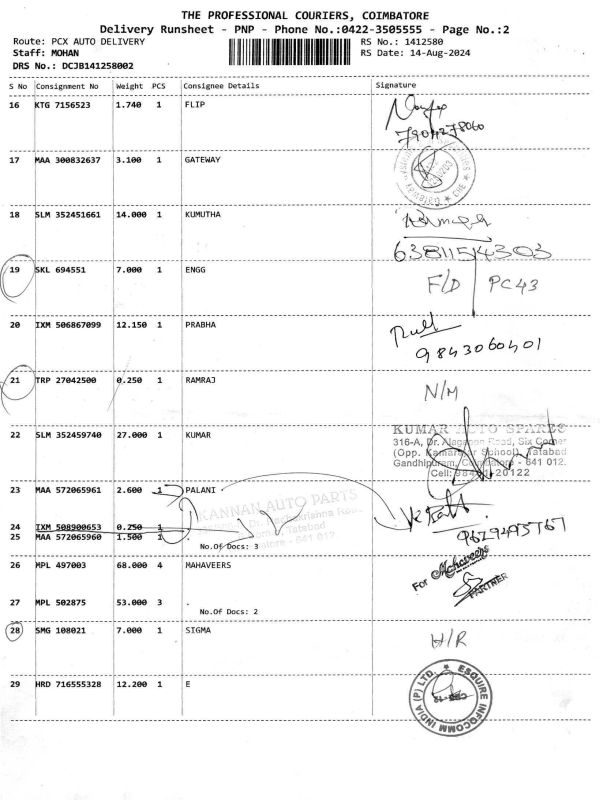 THE PROFESSIONAL COURIERS, COIMBATORE
Delivery Runsheet - PNP - Phone No.:0422-3505555 - Page No.:2
Route: PCX AUTO DELIVERY RS No.: 1412580
Staff: MOHAN RS Date: 14-Aug-2024
DRS No.: DCJB141258002
S No Consignment No Weight PCS Consignee Details Signature
16 KTG 7156523 1.740 1 FLIP
7904278060
17 MAA 300832637 3.100 1 GATEWAY
18 SLM 352451661 14.000 1 KUMUTHA
6381154303
19 SKL 694551 7.000 1 ENGG F/D PC43
20 IXM 506867099 12.150 1 PRABHA
9843060401
21 TRP 27042500 0.250 1 RAMRAJ N/M
KUMAR AUTO SPARES
22 SLM 352459740 27.000 1 KUMAR 316-A, Dr. Road, Six Corner
(Opp. School), Tatabad
Gandhipuram, Coimbatore - 641 012.
Cell: 20122
23 MAA 572065961 2.600 1 PALANI
KANNAN AUTO PARTS
Tatabad
641 012.
24 IXM 508900653 0.250 1
25 MAA 572065960 1.500 1 .
No.Of Docs: 3
9629495767
26 MPL 497003 68.000 4 MAHAVEERS For Mahaveers
PARTNER
27 MPL 502875 53.000 3 .
No.Of Docs: 2
28 SMG 108021 7.000 1 SIGMA H/R
29 HRD 716555328 12.200 1 E ESQUIRE INFOCOMM INDIA (P) LTD.